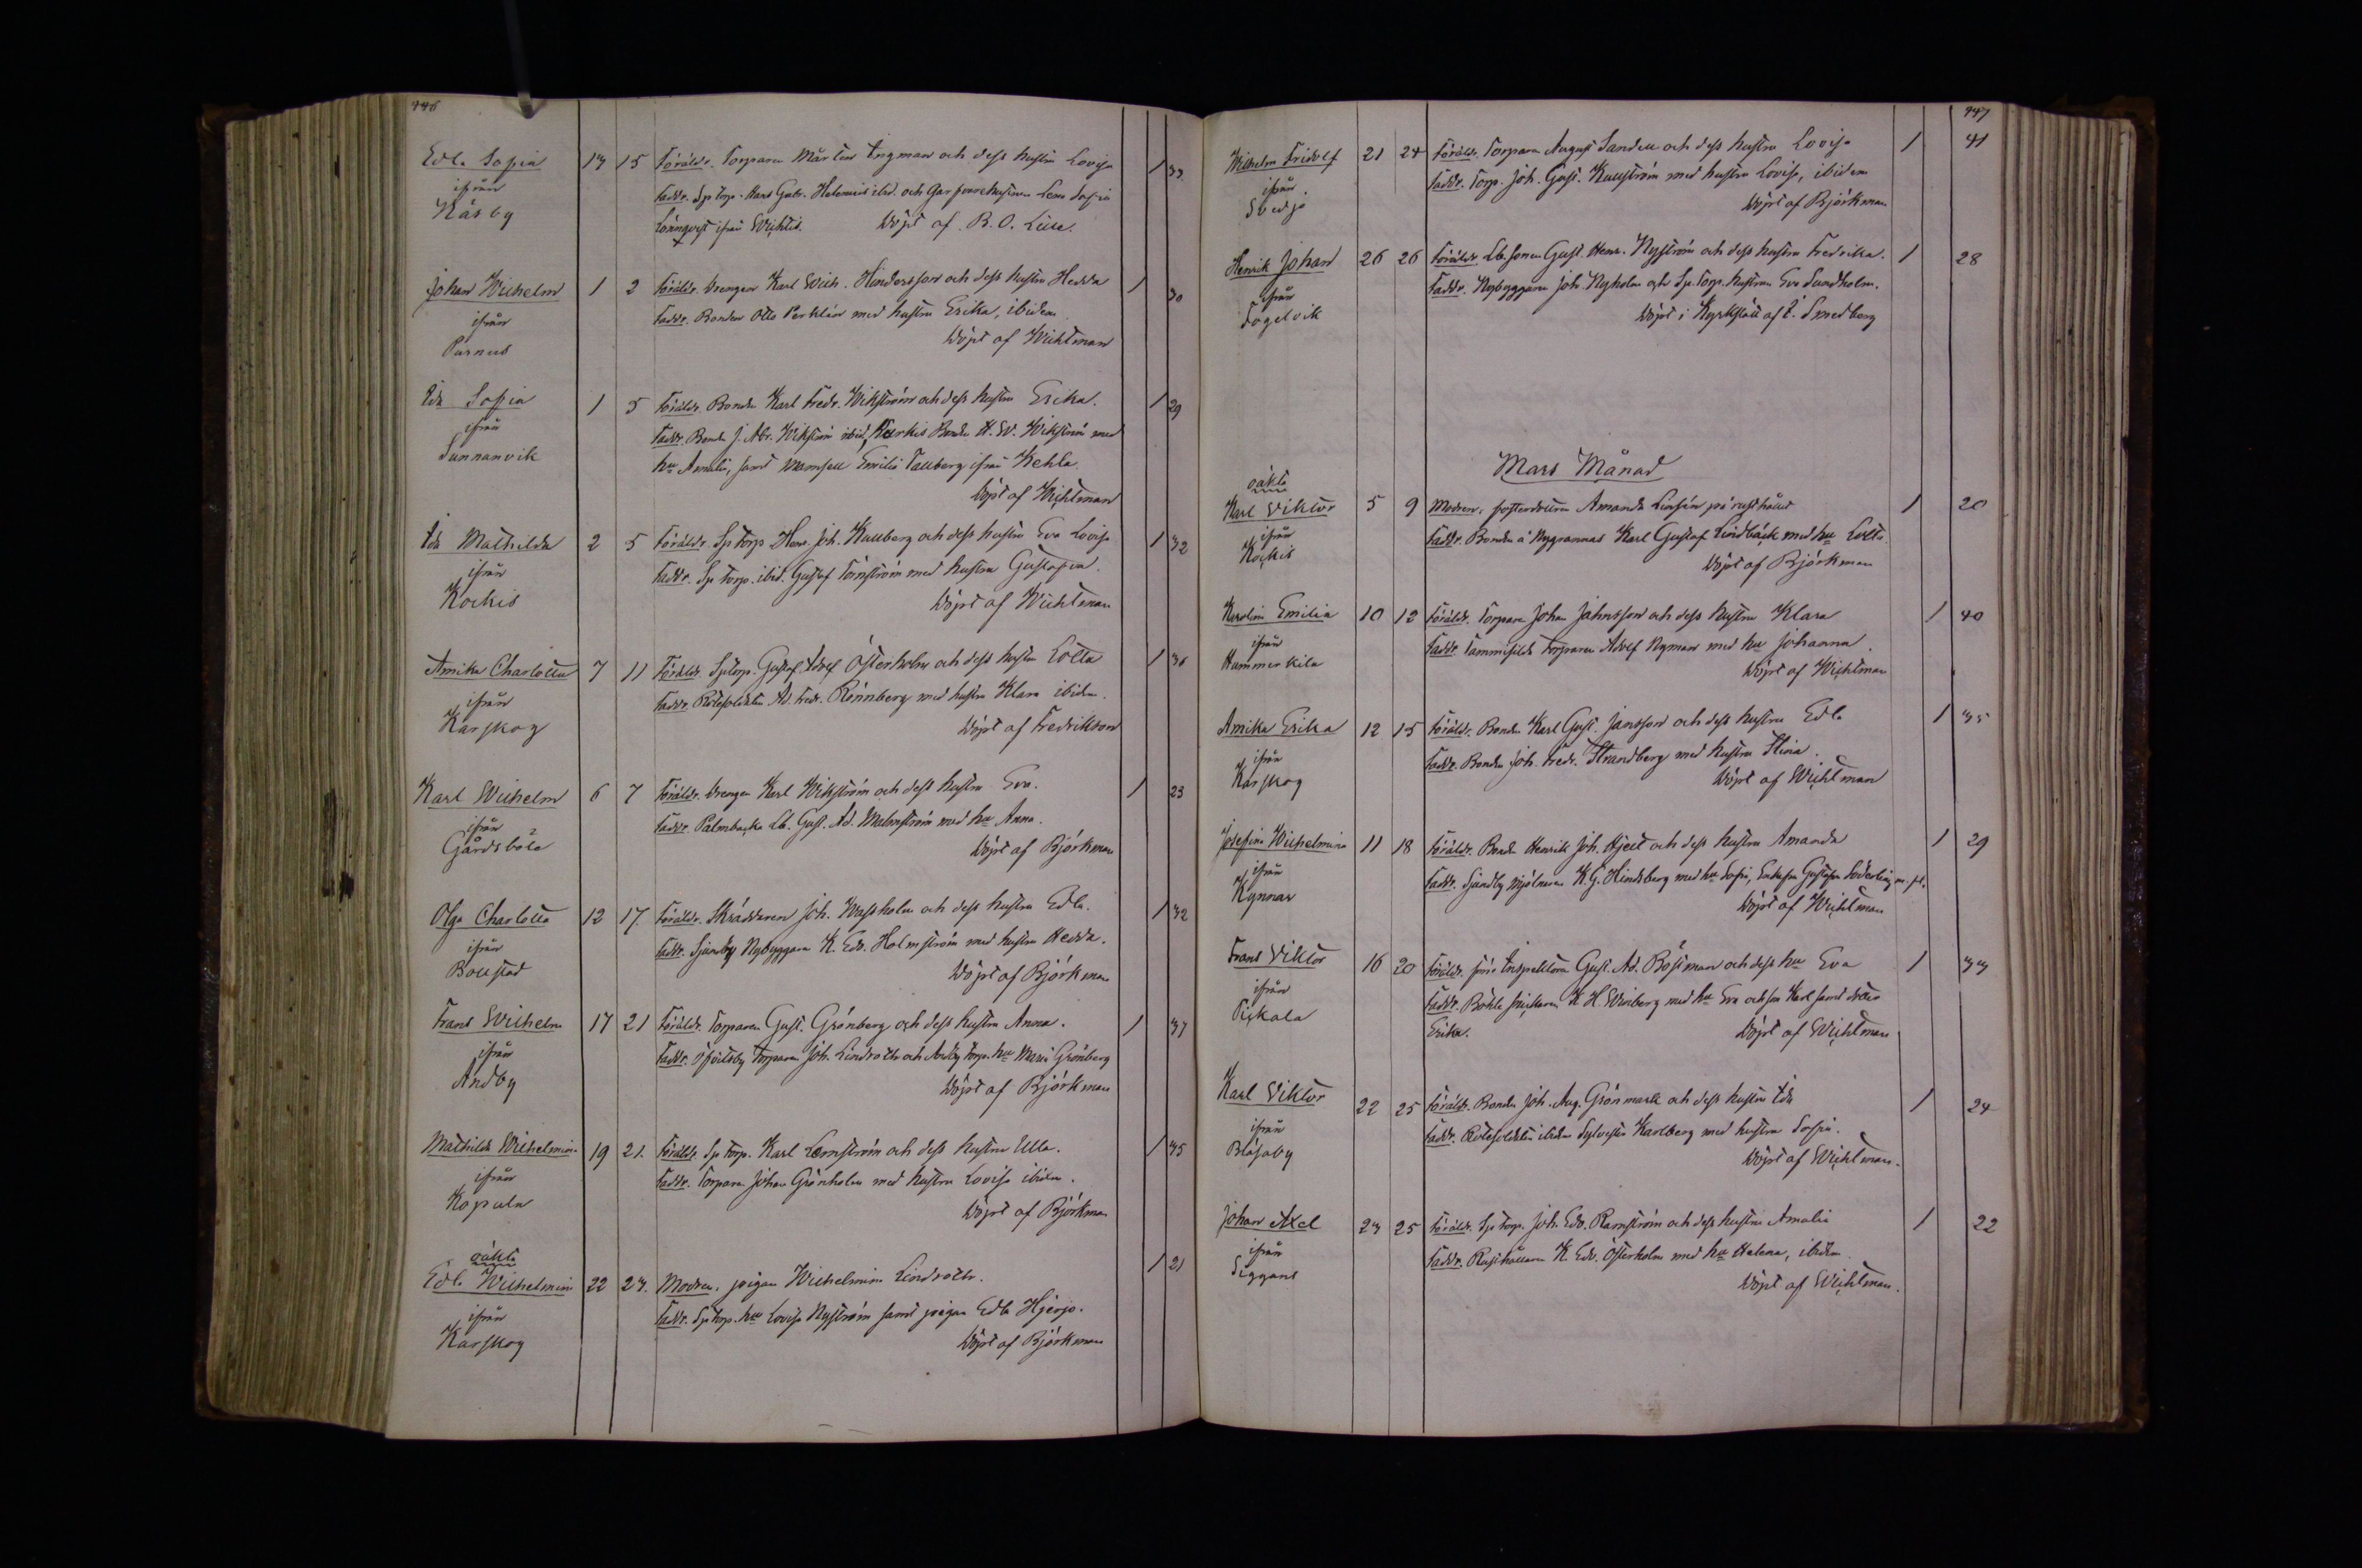 446
Edla Sofia 13 15 Föräldr. Torparen Mårten Engman och dess hustru Lovisa 1 33
ifrån Faddr. Sp torp. Hans Gabr. Helenius ibid. och Garfvarehustrun Lena Sofia
Kåsby Lönnqvist ifrån Wichtis. Döpt af B. O. Lille.
Johan Wilhelm 1 2 Föräldr. Drengen Karl Wilh. Hindersson och dess hustru Hedda 1 30
ifrån Faddr. Bonden Otto Perklén med hustru Erika, ibidem
Purnus Döpt af Wichtman
Ida Sofia 1 5 Föräldr. Bonden Karl Fredr. Wikström och dess hustru Erika. 1 29
ifrån Faddr. Bonden J. Abr. Wikström ibid, Kurkis Bonden H. W. Wikström med
Sunnanvik hu Amalia, samt Mamsell Emilia Tallberg ifrån Kehla.
Döpt af Wichtman
Ida Mathilda 2 5 Föräldr. Sp torp Henr. Joh. Kullberg och dess hustru Eva Lovisa 1 32
ifrån Faddr. Sp torp. ibid. Gustaf Törnström med hustru Gustafva.
Kockis Döpt af Wichtman
Annika Charlotta 7 11 Föräldr. Sp torp. Gustaf Adolf Österholm och dess hustru Lotta 1 36
ifrån Faddr. Rotesoldaten Ad. Fredr. Rönnberg med hustru Klara ibidem.
Karskog Döpt af Fredrikson
Karl Wilhelm 6 7 Föräldr. Drengen Karl Wikström och dess hustru Eva. 1 23
ifrån Faddr. Palmbacka Lb. Gust. Ad. Malmström med hu Anna.
Gårdsböle Döpt af Björkman
Olga Charlotta 12 17. Föräldr. Skräddaren Joh. Wassholm och dess hustru Edla. 1 32
ifrån Faddr. Sjundby Nybyggaren K. Edv. Holmström med hustru Hedda.
Bollstad Döpt af Björkman
Frans Wilhelm 17 21 Föräldr. Torparen Gust. Grönberg och dess hustru Anna. 1 37
ifrån Faddr. Torparen Joh. Lindroth och Andby torp. hu Maria Grönberg
Andby Döpt af Björkman
Mathilda Wilhelmin. 19 21. Föräldr. Sp torp. Karl Lemström och dess hustru Ulla. 1 35
ifrån Faddr. Torparen Johan Grönholm med hustru Lovisa ibidem.
Kopula Döpt af Björkman
oäkta
Edla Wilhelmina 22 23. Modren, pigan Wilhelmina Lindroth. 1 21
ifrån Faddr. Sp torp. hu Lovisa Nyström samt pigan Edla Hjerpe.
Karskog Döpt af Björkman
447
Wilhelm Fridolf 21 24 Föräldr. Torparen August Sandell och dess hustru Lovisa 1 41
ifrån Faddr. Torp. Joh. Gust. Kullström med hustru Lovisa, ibidem
Svedja Döpt af Björkman
Henrik Johan 26 26 Föräldr. Lb. sonen Gust. Henr. Nyström och dess hustru Fredrika. 1 28
ifrån Faddr. Nybyggaren Joh. Nyholm och Sp. torp. hustrun Eva Sundholm.
Fogelvik Döpt i Kyrkslätt af E. Smedberg
Mars Månad
oäkta
Karl Viktor 5 9 Modren, fosterdottren Amanda Linsén på rusthållet 1 20
ifrån Faddr. Bonden å Nygrannas Karl Gustaf Lindbäck med hu Lotta
Kockis Döpt af Björkman
Karolina Emilia 10 12 Föräldr. Torparen Johan Jahnsson och dess hustru Klara 1 40
ifrån Faddr. Torparen Adolf Nyman med hu Johanna.
Hummerkila Döpt af Wichtman
Annika Erika 12 15 Föräldr. Bonden Karl Gust. Jansson och dess hustru Edla 1 35
ifrån Faddr. Bonden Joh. Fredr. Strandberg med hustru Stina.
Karskog Döpt af Wichtman
Josefina Wilhelmina 11 18 Föräldr. Bonden Henrik Joh. Hjelt och dess hustru Amanda 1 29
ifrån Faddr. Sjundby mjölnaren K. G. Hindsberg med hu Sofia, Enkefru Gustafva Söderling
Kynnar Döpt af Wichtman
Frans Viktor 16 20 Föräldr. Inspektoren Gust. Ad. Böstman och dess hu Eva 1 33
ifrån Faddr. Böhle snickaren K. H. Winberg med hu Eva och son Karl samt dotter
Pickala Erika. Döpt af Wichtman
Karl Viktor 22 25 Föräldr. Bonden Joh. Aug. Grönmark och dess hustru Ida 1 24
ifrån Faddr. Rotesoldaten ibidem Sylvester Karlberg med hustru Sofia.
Blåsaby Döpt af Wichtman.
Johan Axel 23 25 Föräldr. Sp torp. Joh. Edv. Ramström och dess hustru Amalia 1 22
ifrån Faddr. Rusthållaren K. Edv. Österholm med hu Helena, ibidem
Siggans Döpt af Wichtman.